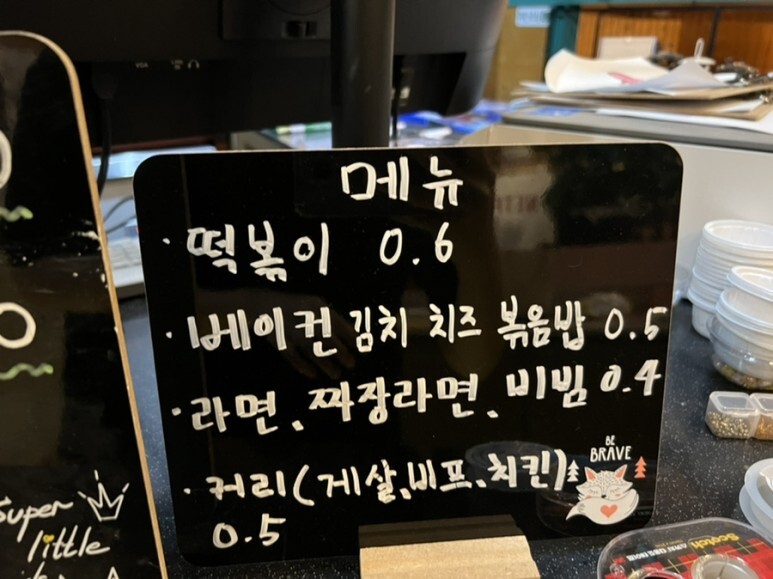 메뉴
· 떡볶이 0.6
· 베이컨 김치 치즈 볶음밥 0.5
· 라면、짜장라면、비빔 0.4
· 커리(게살、비프、치킨)
0.5
BE
BRAVE
Super
little
Scotch